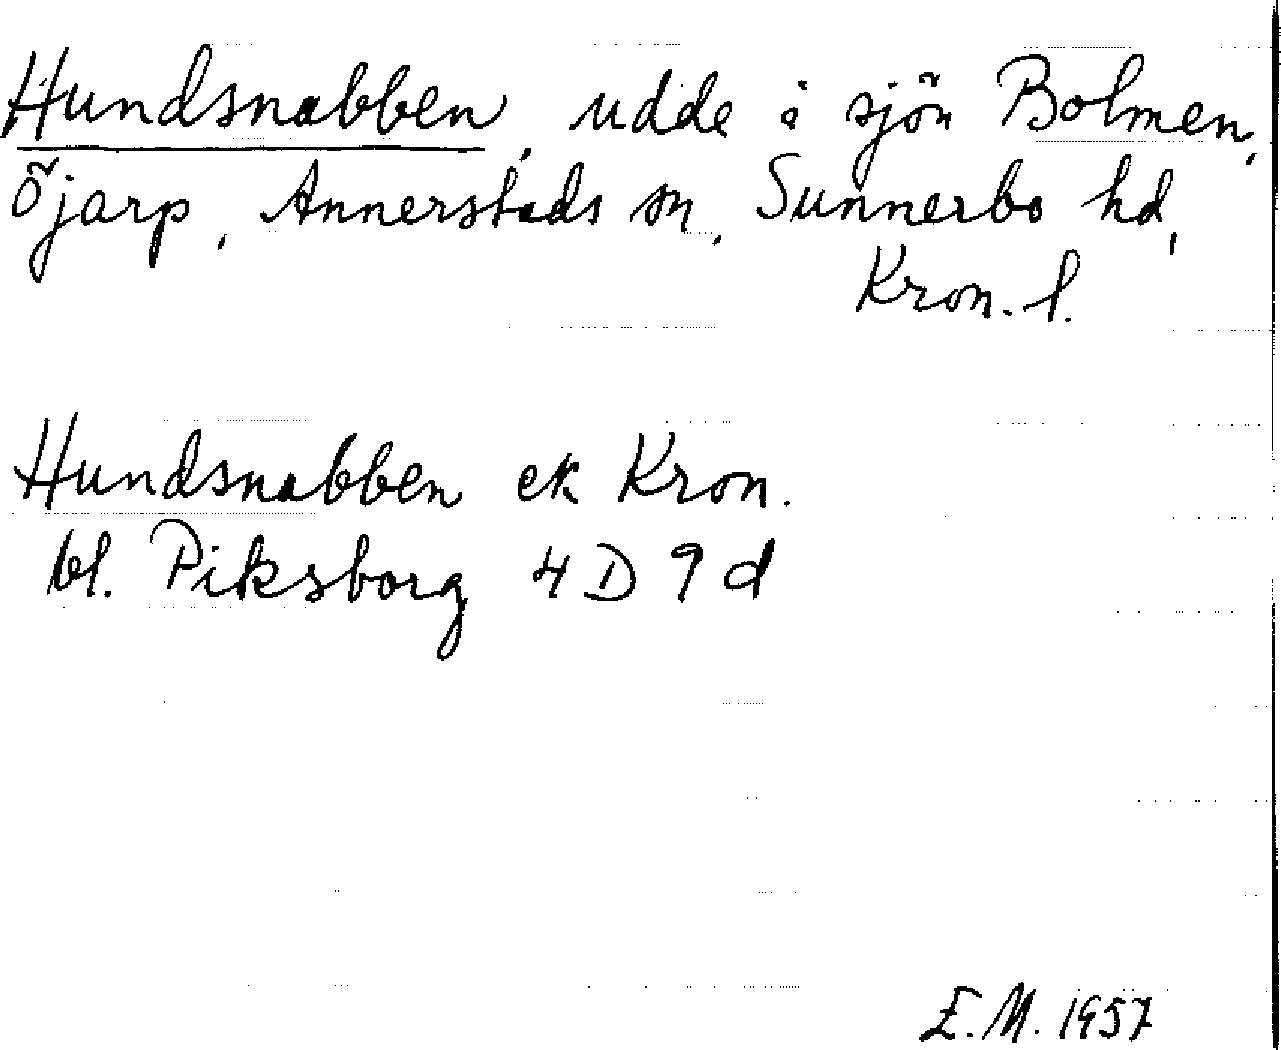 Hundsnabben, udde i sjön Bolmen,
Öjarp, Annerstads sn, Sunnerbo hd,
Kron. l.
Hundsnabben ek Kron.
bl. Piksborg 4 D 9 d
E. M. 1957